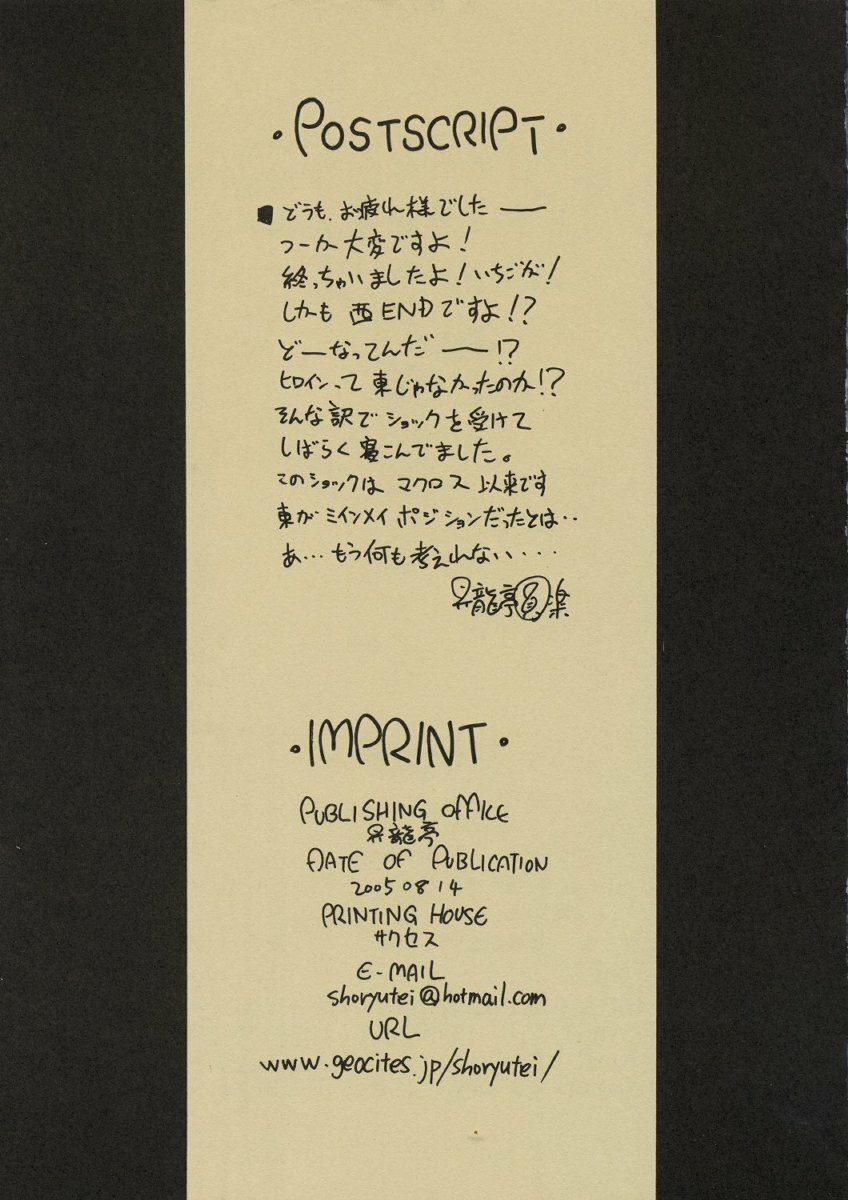 ・POSTSCRIPT・
■どうも、お疲れ様でした――
つーか大変ですよ!
終っちゃいましたよ!いちごが!
しかも 西ENDですよ!?
どーなってんだ――!?
ヒロインって東じゃなかったのか!?
そんな訳でショックを受けて
しばらく寝こんでました。
このショックは マクロス以来です
東がミインメイ ポジションだったとは‥
あ…もう何も考えれない・・・
昇龍亭圓楽
・IMPRINT・
PUBLISHING OFFICE
昇龍亭
DATE OF PUBLICATION
2005 08 14
PRINTING HOUSE
サクセス
E-MAIL
shoryutei@hotmail.com
URL
www.geocites.jp/shoryutei/